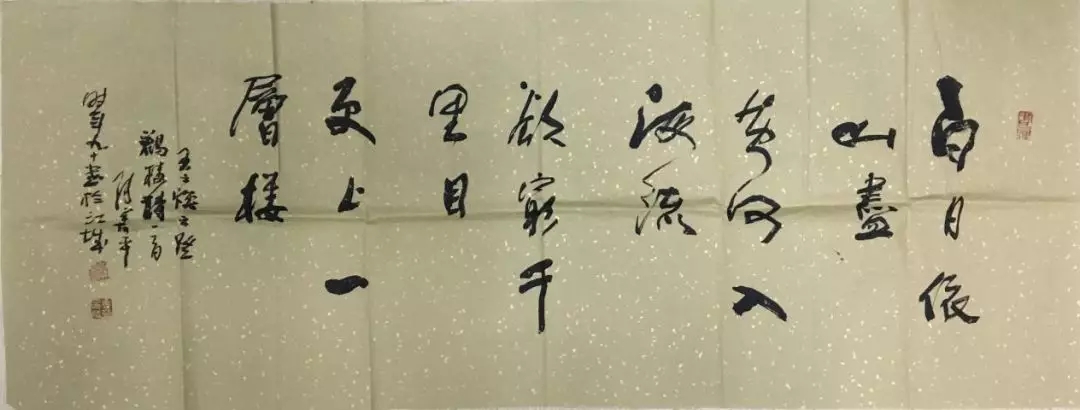 白日依
山盡
黄河入
海流
欲窮千
里目
更上一
層樓
王之焕之登
鸛樓詩一首
平
时年九十書於江城